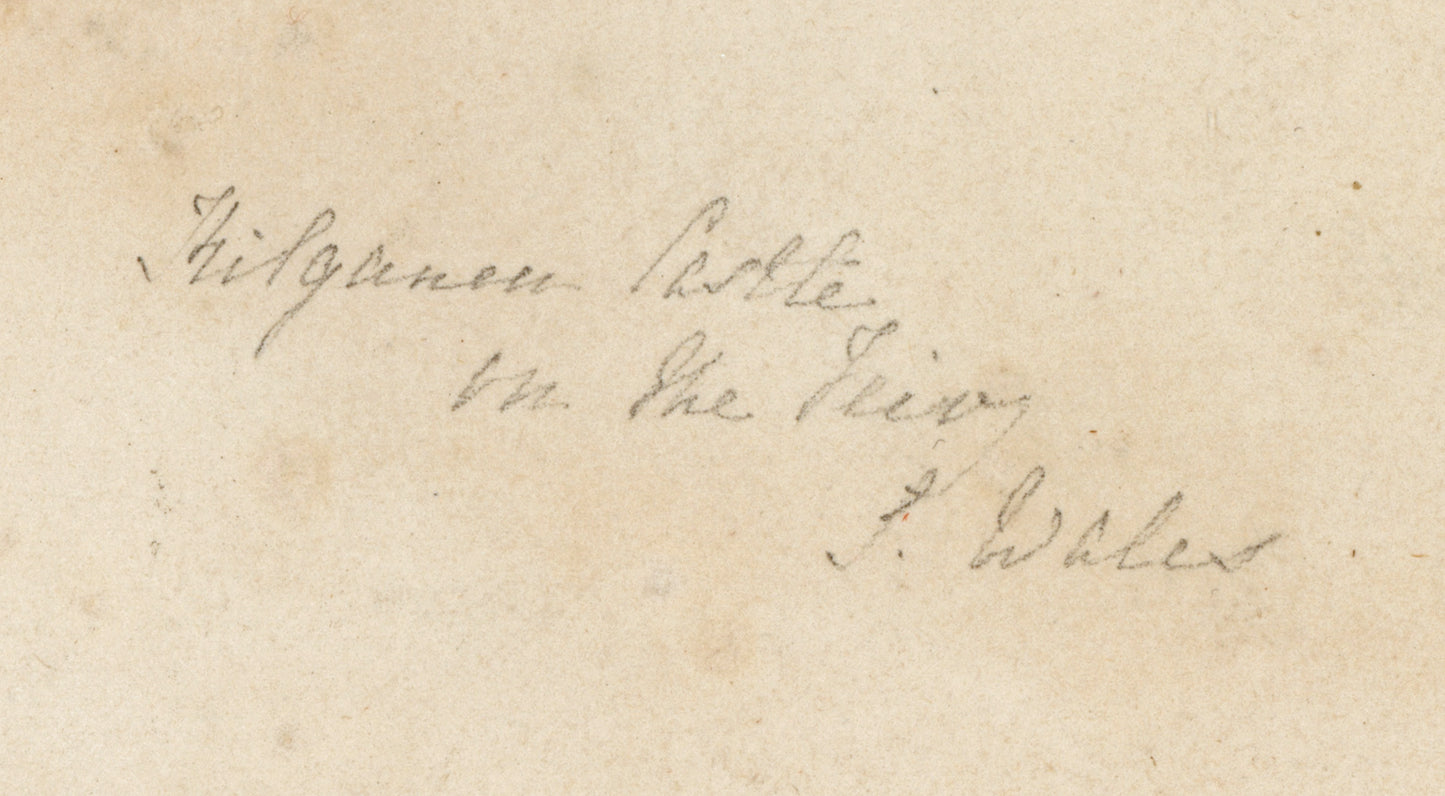 Kilgaren Castle
on the Teivy
S. Wales